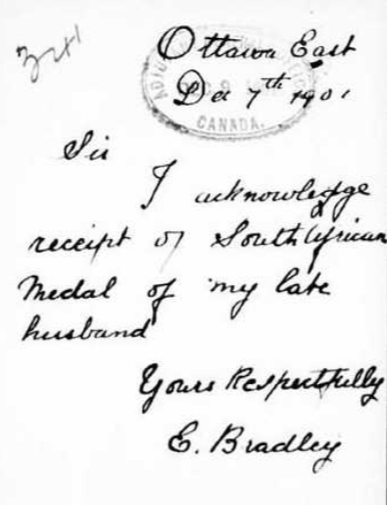 341
Ottawa East
Dec 7th 1901
CANADA.
Sir
I acknowledge
receipt of South African
Medal of my late
husband
Yours Respectfully
E. Bradley